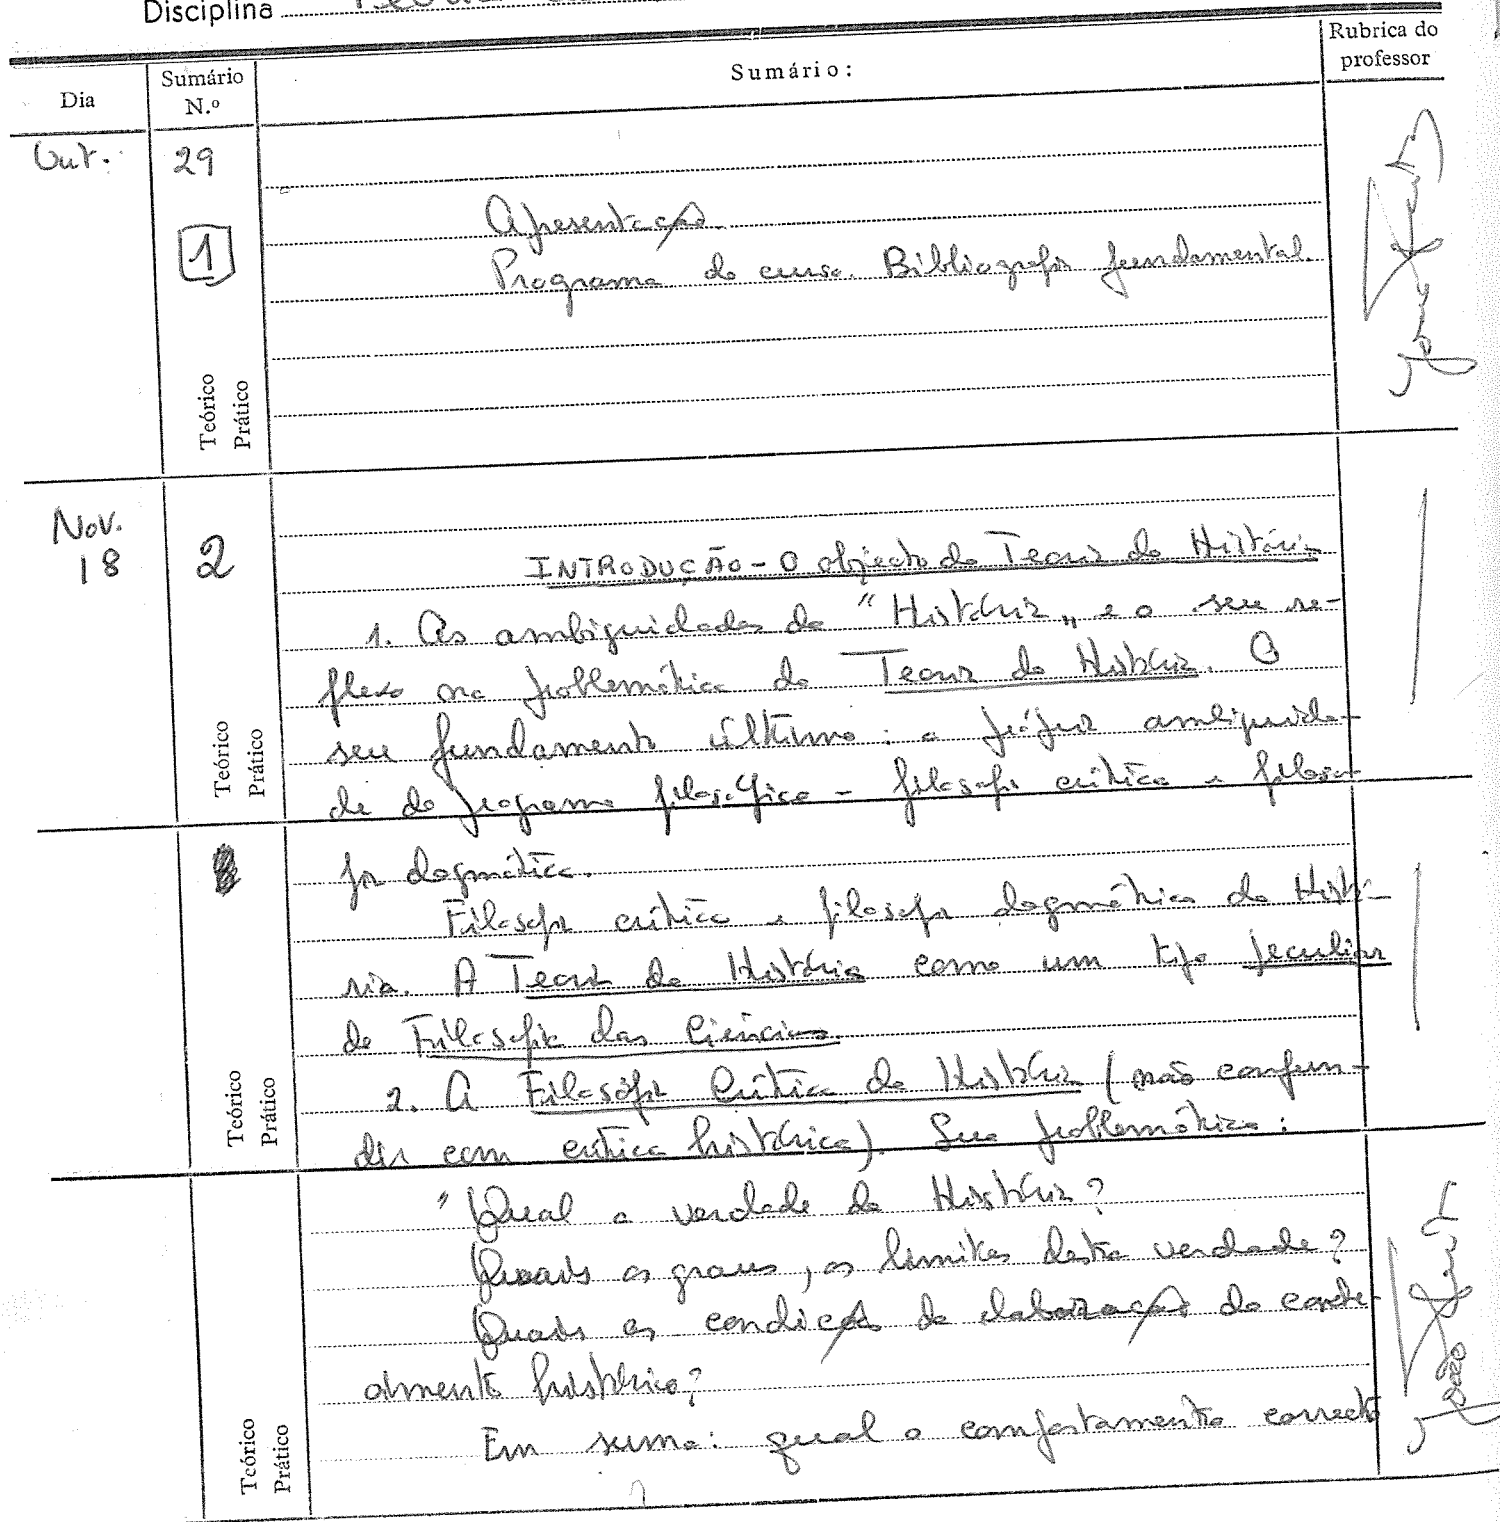 Disciplina
Dia
Sumário
N.º
Sumário:
Rubrica do
professor
Out. 29
1
Apresentação.
Programa do curso. Bibliografia fundamental.
Teórico
Prático
Nov.
18
2
INTRODUÇÃO - O objecto da Teoria da História
1. As ambiguidades da "História" e o seu re-
flexo na problemática da Teoria da História. O
seu fundamento último: a própria ambiguida-
de do programa filosófico - filosofia crítica e filoso-
Teórico
Prático
fia dogmática.
Filosofia crítica e filosofia dogmática da Histó-
ria. A Teoria da História como um tipo peculiar
de Filosofia das Ciências
2. A Filosofia Crítica da História (não confun-
dir com crítica histórica). Sua problemática:
Teórico
Prático
"Qual a verdade da História?
Quais os graus, os limites desta verdade?
Quais as condições da elaboração do conhe-
cimento histórico?
Em suma: qual o comportamento correcto
Teórico
Prático